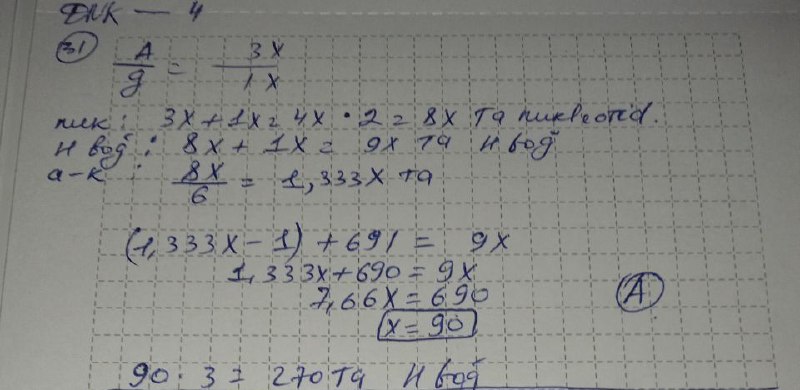 ДНК — 4
31 A/g = 3x/1x
нук : 3x + 1x = 4x · 2 = 8x та nukleotid.
H boğ : 8x + 1x = 9x та H boğ
a-к : 8x/6 = 1,333x та
(1,333x - 1) + 691 = 9x
1,333x + 690 = 9x
7,66x = 690
A
x = 90
90 · 3 = 270 та H boğ